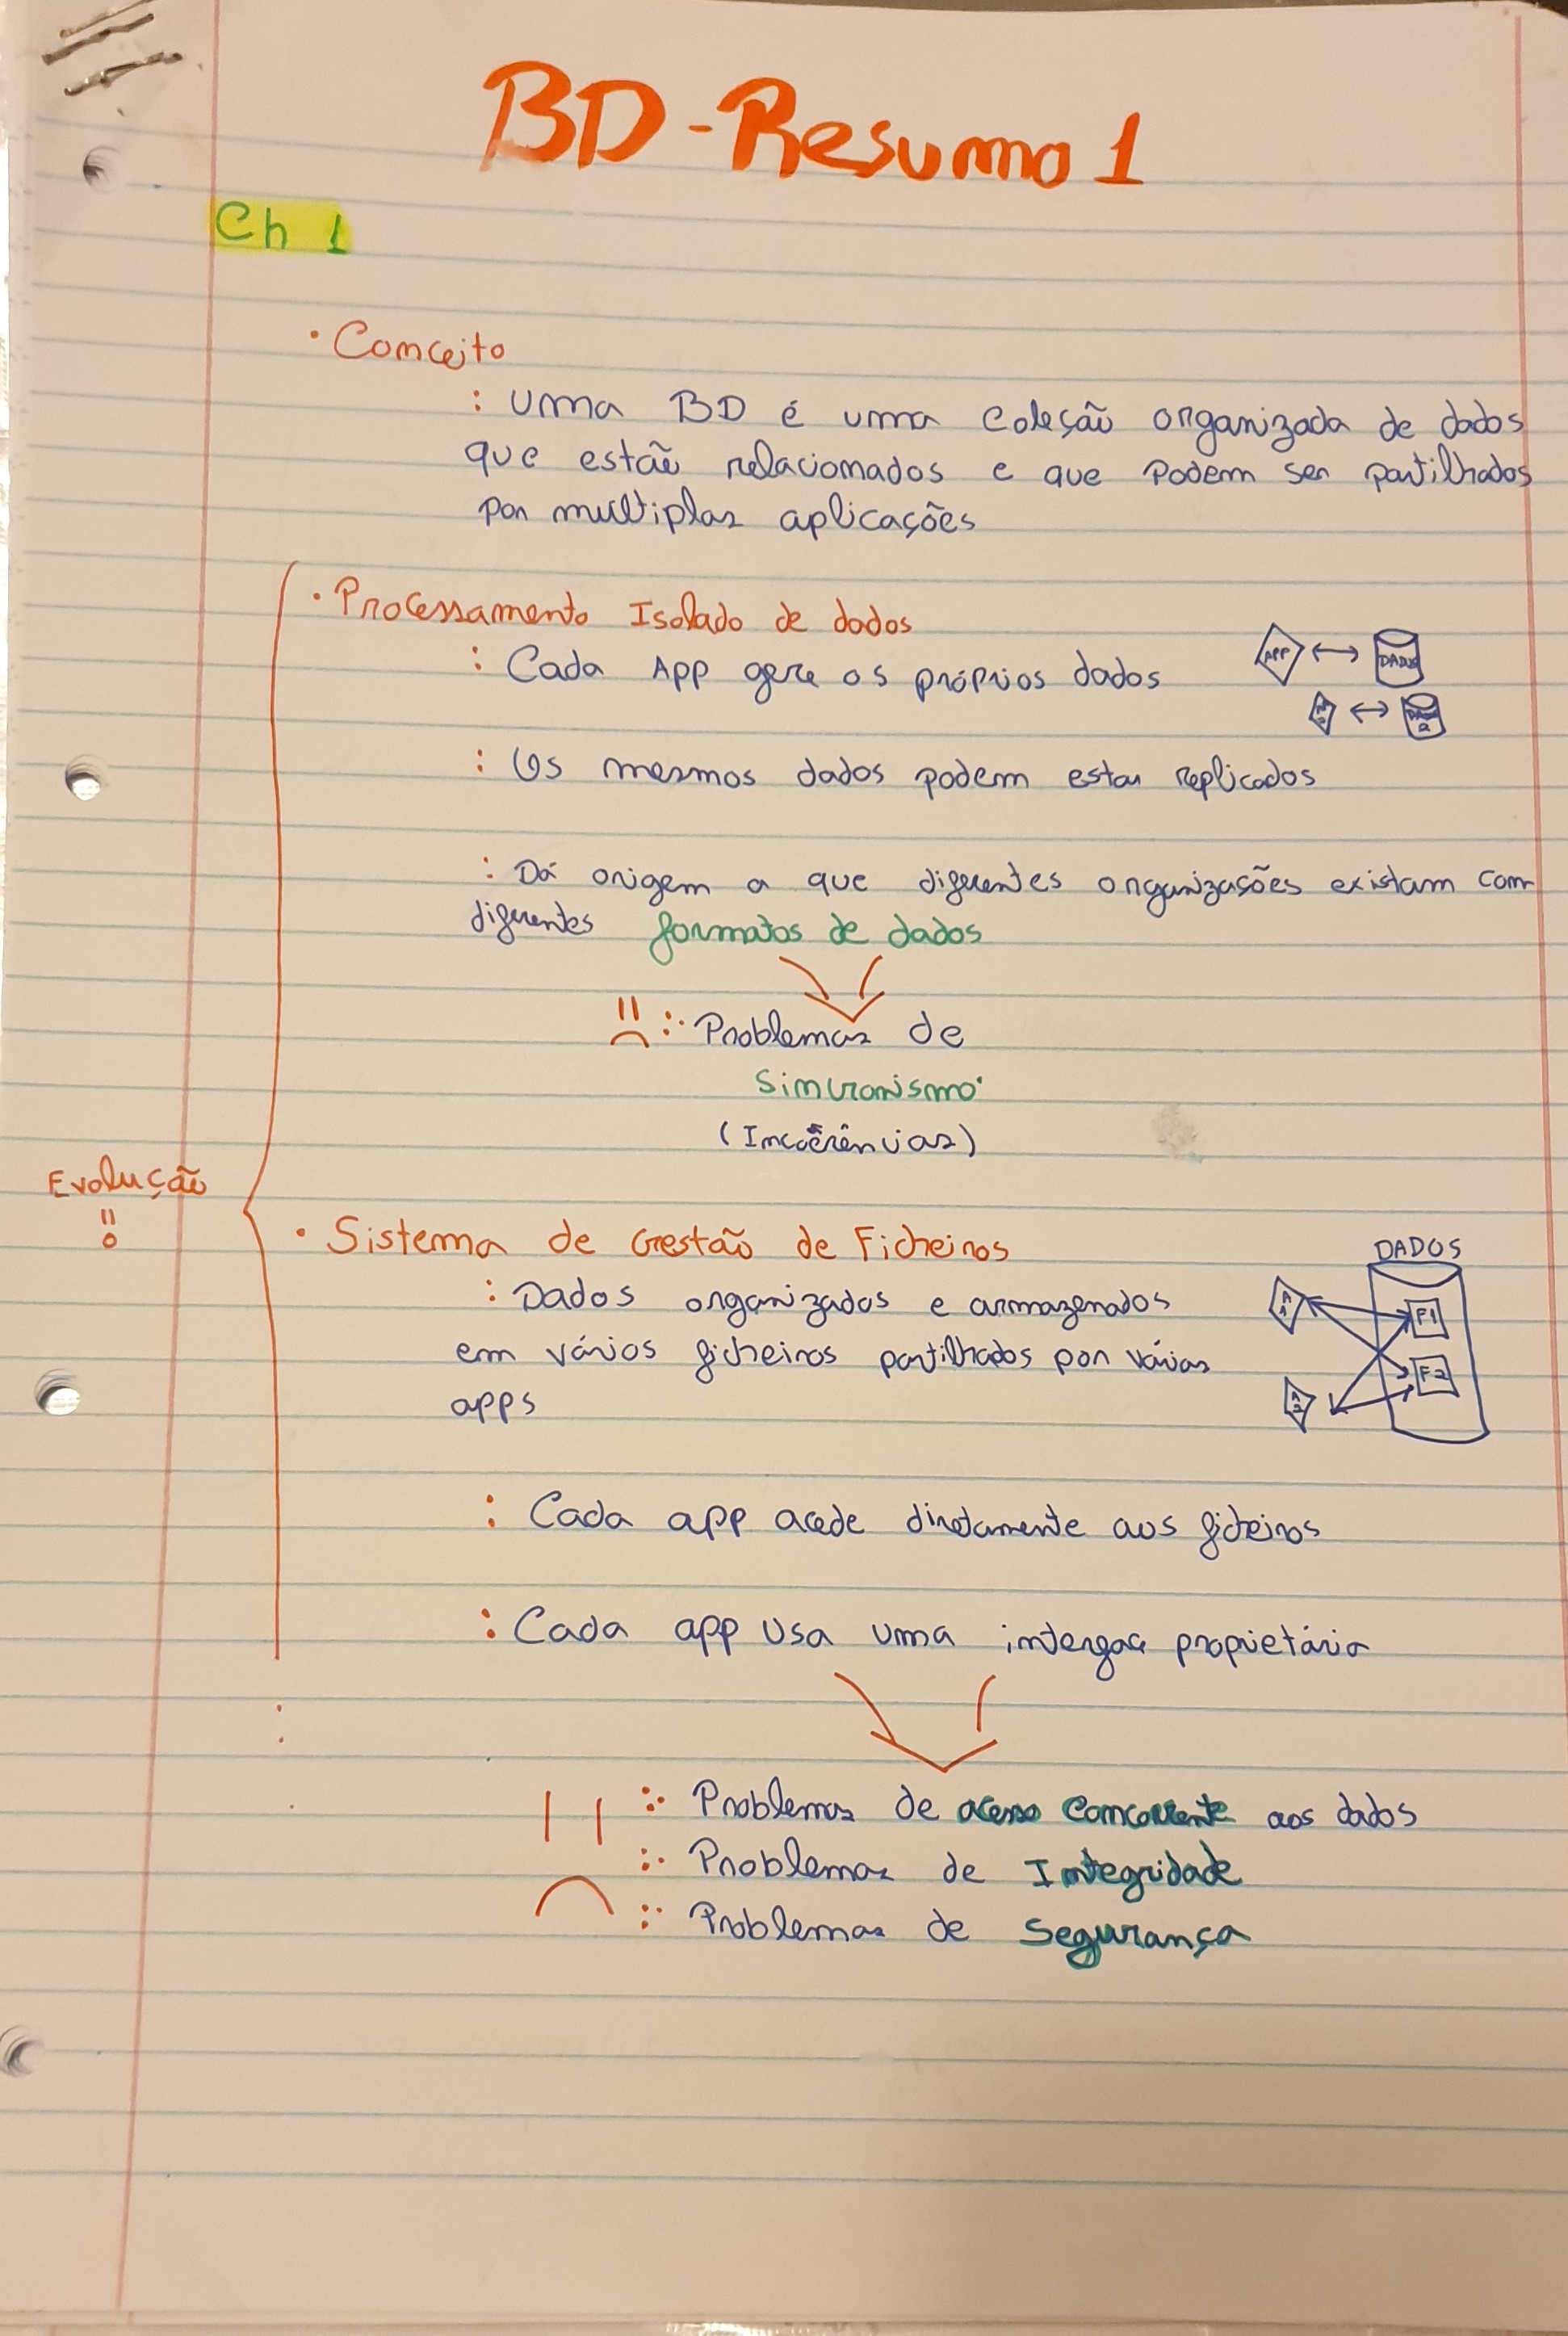 BD - Resumo 1
Ch 1
· Conceito
: uma BD é uma coleção organizada de dados
que estão relacionados e que podem ser partilhados
por múltiplas aplicações
· Processamento Isolado de dados
: Cada App gere os próprios dados
APP ↔ DADOS
: Os mesmos dados podem estar replicados
: Dá origem a que diferentes organizações existam com
diferentes formatos de dados
:· Problemas de
Sincronismo
(Incoerências)
Evolução
· Sistema de Gestão de Ficheiros
DADOS
: Dados organizados e armazenados
A1
F1
em vários ficheiros partilhados por várias
F2
apps
A2
: Cada app acede diretamente aos ficheiros
: Cada app usa uma interface proprietária
:· Problemas de acesso concorrente aos dados
:· Problemas de Integridade
:· Problemas de Segurança